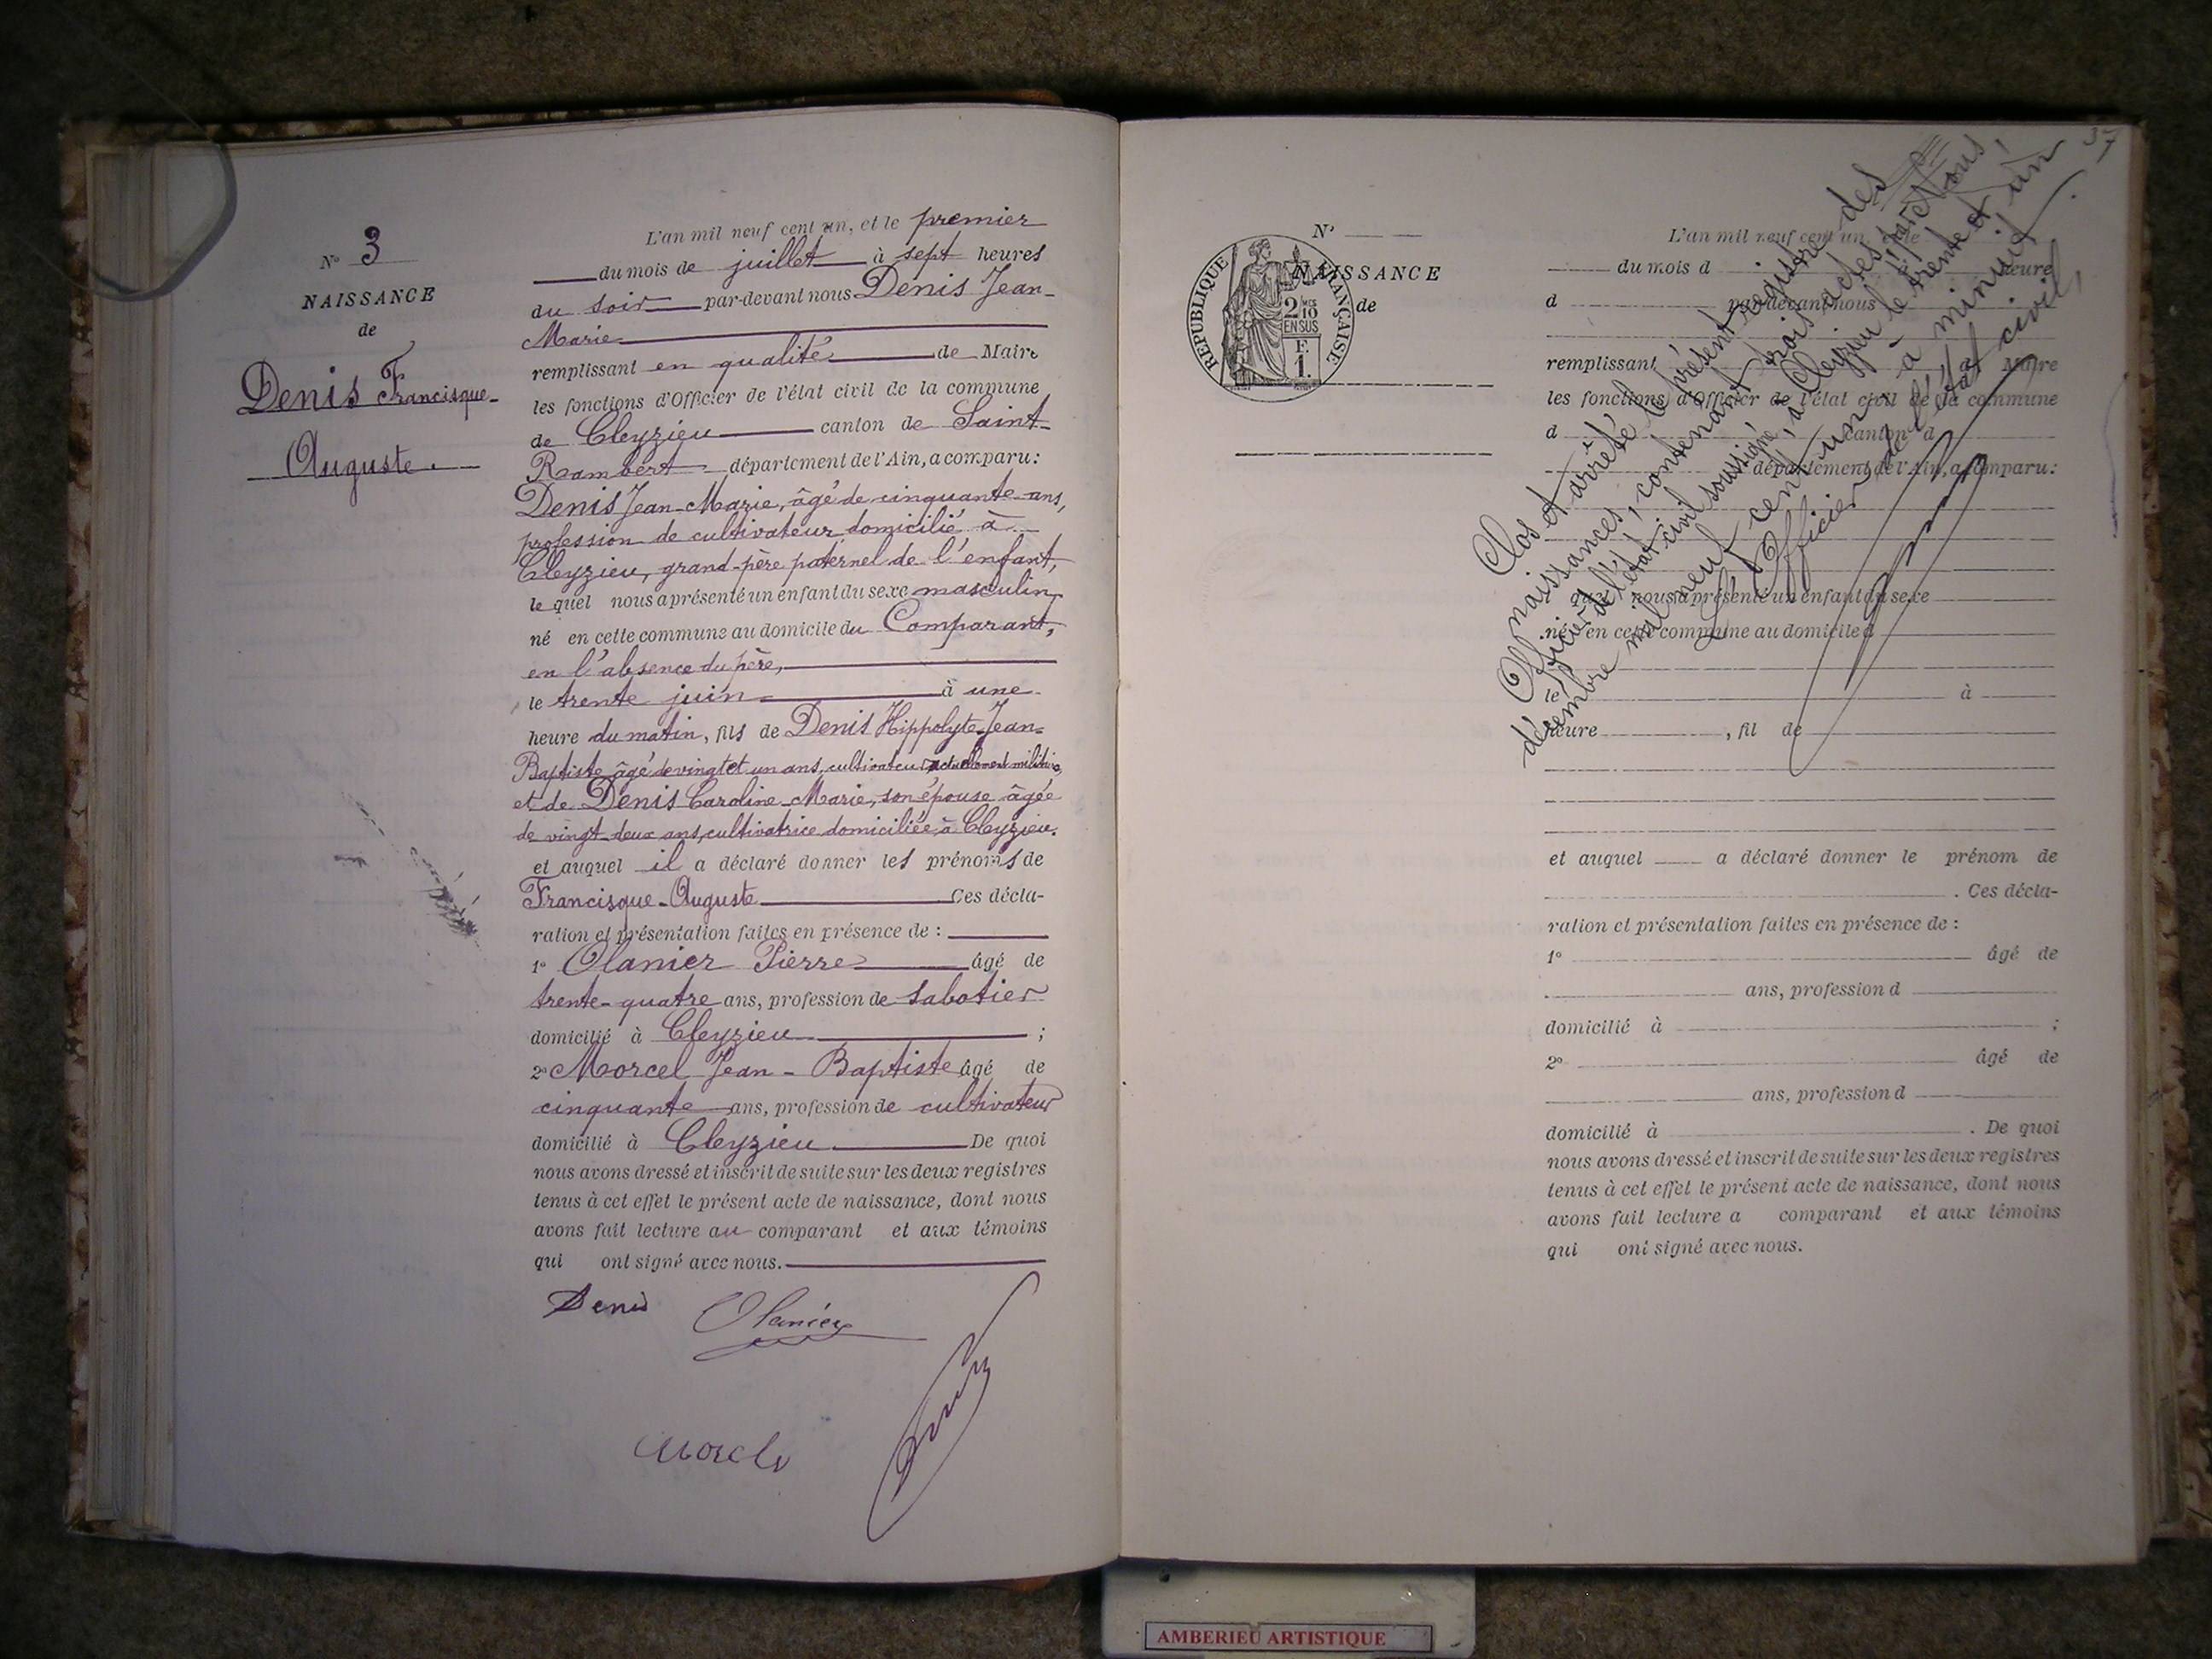 N° 3
NAISSANCE
de
Denis Francisque-
Auguste.
L'an mil neuf cent un, et le premier
du mois de juillet à sept heures
du soir par-devant nous Denis Jean-
Marie
remplissant en qualité de Maire
les fonctions d'Officier de l'état civil de la commune
de Cleyzieu canton de Saint-
Rambert département de l'Ain, a comparu:
Denis Jean-Marie, âgé de cinquante ans,
profession de cultivateur domicilié à
Cleyzieu, grand-père paternel de l'enfant,
le quel nous a présenté un enfant du sexe masculin
né en cette commune au domicile du Comparant,
en l'absence du père,
le trente juin à une
heure du matin, fils de Denis Hippolyte-Jean-
Baptiste âgé de vingt et un ans, cultivateur actuellement militaire,
et de Denis Caroline-Marie, son épouse âgée
de vingt-deux ans, cultivatrice domiciliée à Cleyzieu.
et auquel il a déclaré donner les prénoms de
Francisque-Auguste Ces décla-
ration et présentation faites en présence de :
1° Olanier Pierre âgé de
trente-quatre ans, profession de sabotier
domicilié à Cleyzieu ;
2° Morcel Jean-Baptiste âgé de
cinquante ans, profession de cultivateur
domicilié à Cleyzieu De quoi
nous avons dressé et inscrit de suite sur les deux registres
tenus à cet effet le présent acte de naissance, dont nous
avons fait lecture au comparant et aux témoins
qui ont signé avec nous.
Denis Olanier
Morcel
37
N°
NAISSANCE
de
REPUBLIQUE FRANÇAISE
2/10 EN SUS
F. 1.
L'an mil neuf cent un, et le
du mois d heure
d par-devant nous
remplissant Maire
les fonctions d'Officier de l'état civil de la commune
d canton d
département de l'Ain, a comparu:
quel nous a présenté un enfant du sexe
né en cette commune au domicile d
le à
heure , fil de
et auquel a déclaré donner le prénom de
. Ces décla-
ration et présentation faites en présence de :
1° âgé de
ans, profession d
domicilié à ;
2° âgé de
ans, profession d
domicilié à . De quoi
nous avons dressé et inscrit de suite sur les deux registres
tenus à cet effet le présent acte de naissance, dont nous
avons fait lecture a comparant et aux témoins
qui ont signé avec nous.
Clos et arrêté le présent registre des
naissances, contenant trois actes par Nous,
Officier de l'état civil soussigné, à Cleyzieu le trente et un
décembre mil neuf cent un à minuit.
L'Officier de l'état civil,
AMBERIEU ARTISTIQUE